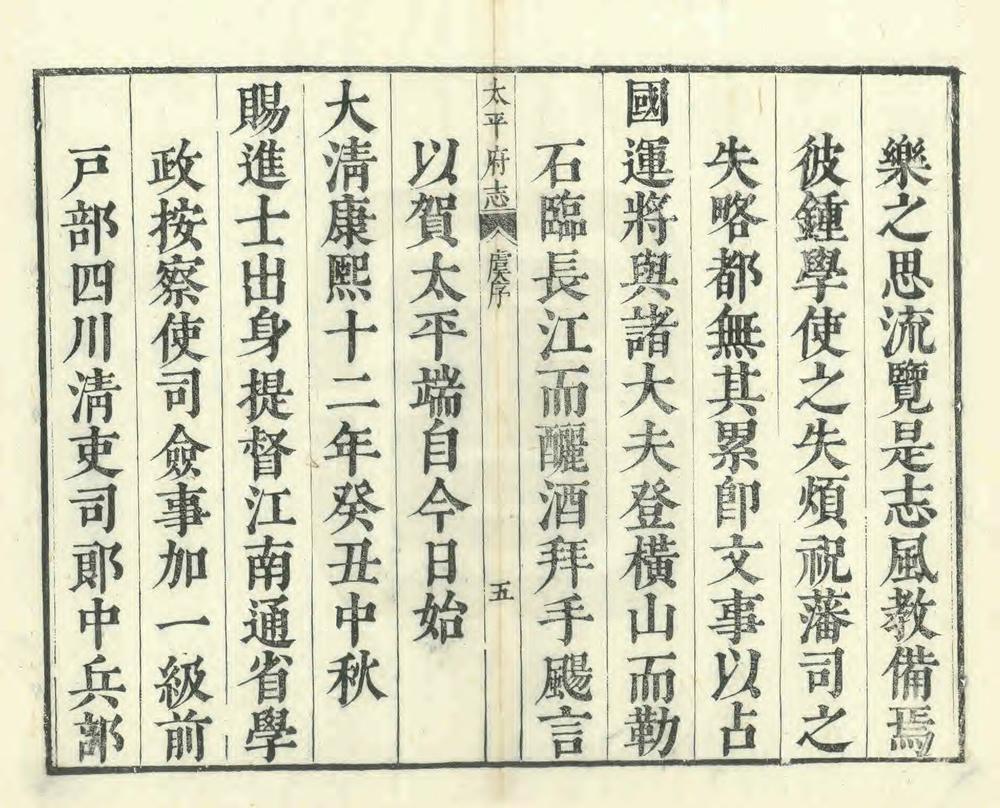 樂之思流覽是志風教備焉
彼鍾學使之失煩祝藩司之
失略都無其累卽文事以占
國運將與諸大夫登橫山而勒
石臨長江而釃酒拜手颺言
太平府志 虞序 五
以賀太平端自今日始
大淸康熙十二年癸丑中秋
賜進士出身提督江南通省學
政按察使司僉事加一級前
戸部四川淸吏司郞中兵部